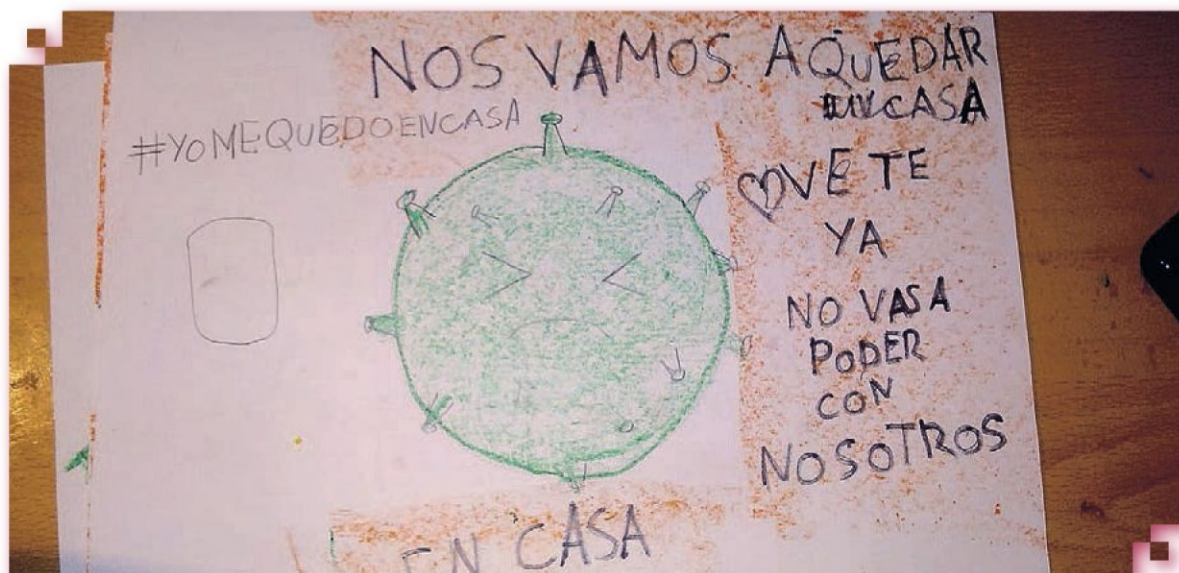 NOS VAMOS A QUEDAR
EN CASA
#YOMEQUEDOENCASA
VE TE
YA
NO VAS A
PODER
CON
NOSOTROS
EN CASA